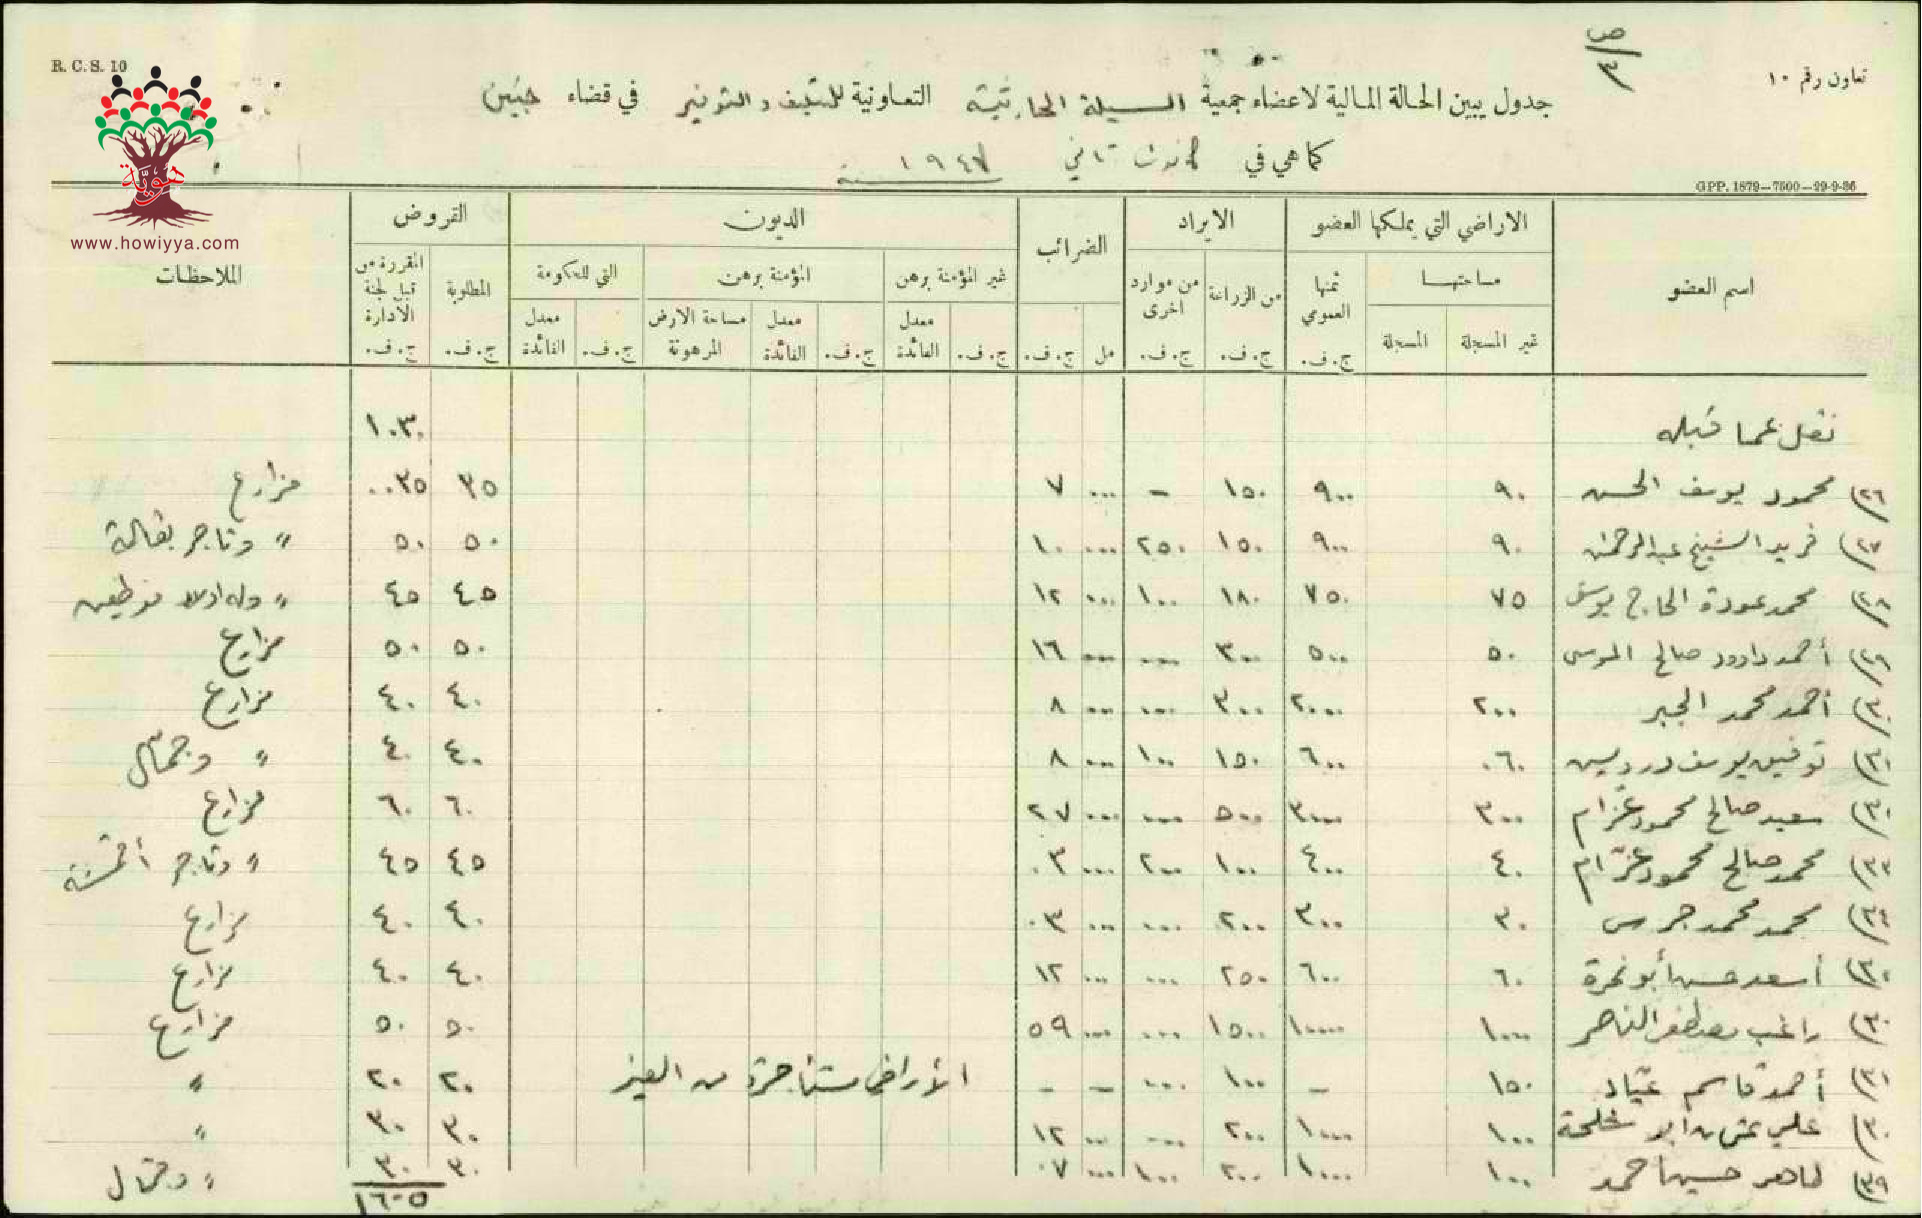 R. C. S. 10
تعاون رقم ١٠
ص ٣
www.howiyya.com
هوية
جدول يبين الحالة المالية لاعضاء جمعية السيلة الحارثية التعاونية للتسليف والتوفير في قضاء جنين
كما هي في كانون ثاني سنة ١٩٤٧
GPP. 1879—7500—29-9-36
اسم العضو الاراضي التي يملكها العضو الايراد الضرائب الديون القروض الملاحظات
مساحتها ثمنها العمومي من الزراعة من موارد اخرى غير المؤمنة برهن المؤمنة برهن التي للحكومة المطلوبة المقررة من قبل لجنة الادارة
غير المسجلة المسجلة ج. ف. ج. ف. ج. ف. مل ج. ف. ج. ف. معدل الفائدة ج. ف. معدل الفائدة مساحة الارض المرهونة ج. ف. معدل الفائدة ج. ف. ج. ف.
نقل عما قبله ١٠٣٠
(٢٦ محمود يوسف الحسن ٩٠ ٩٠٠ ١٥٠ - ... ٧ ٣٥ ٠٠٣٥ مزارع
(٢٧ فريد الشيخ عبدالرحمن ٩٠ ٩٠٠ ١٥٠ ٢٥٠ ... ١٠ ٥٠ ٥٠ " وتاجر بقالة
(٢٨ محمد عودة الحاج يوسف ٧٥ ٧٥٠ ١٨٠ ١٠٠ ... ١٢ ٤٥ ٤٥ " وله اولاد موظفين
(٢٩ أحمد داوود صالح الموسى ٥٠ ٥٠٠ ٣٠٠ ... ... ١٦ ٥٠ ٥٠ مزارع
(٣٠ أحمد محمد الجبر ٢٠٠ ٢٠٠٠ ٣٠٠ ... ... ٨ ٤٠ ٤٠ مزارع
(٣١ توفيق يوسف درديس ٠٦٠ ٦٠٠ ١٥٠ ١٠٠ ... ٨ ٤٠ ٤٠ " وجمّال
سعيد صالح محمود عزّام ٣٠٠ ٣٠٠٠ ٥٠٠ ... ... ٢٧ ٦٠ ٦٠ مزارع
(٣٣ محمد صالح محمود عزّام ٤٠ ٤٠٠ ١٠٠ ٢٠٠ ... ٠٣ ٤٥ ٤٥ " وتاجر أقمشة
(٣٤ محمد محمد جرس ٣٠ ٣٠٠ ٢٠٠ ... ... ٠٣ ٤٠ ٤٠ مزارع
أسعد حسن أبو نمرة ٦٠ ٦٠٠ ٢٥٠ ... ... ١٢ ٤٠ ٤٠ مزارع
راغب مصطفى الناصر ١٠٠٠ ١٠٠٠٠ ١٥٠٠ ... ... ٥٩ ٥٠ ٥٠ مزارع
أحمد قاسم عيّاد ١٥٠ - ١٠٠ ... - - الأراضي مستأجرة من الغير ٢٠ ٢٠ "
علي عثمان ابو ١٠٠ ١٠٠٠ ٢٠٠ ... ... ١٢ ٣٠ ٣٠ "
(٣٩ طاهر حسين احمد ١٠٠ ١٠٠٠ ٢٠٠ ١٠٠ ... ٠٧ ٣٠ ٣٠ " وجمّال
١٦٠٥